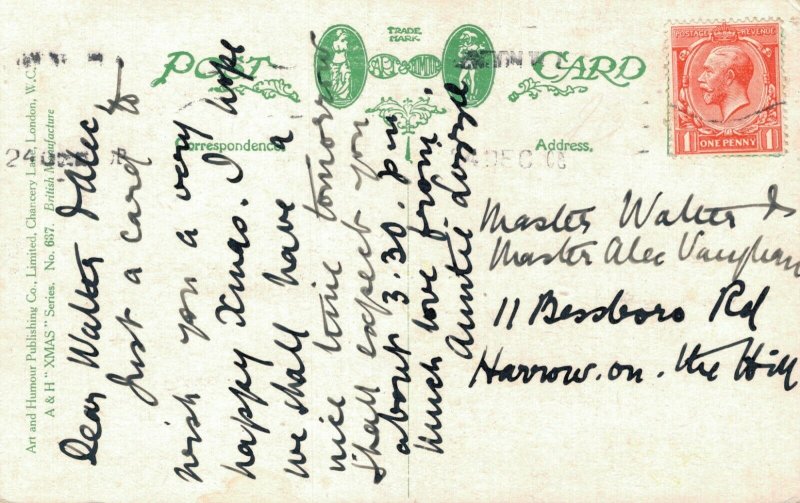 Art and Humour Publishing Co., Limited, Chancery Lane, London, W.C.
A & H "XMAS" Series. No. 687. British Manufacture
POST CARD
TRADE
MARK
ART & HUMOUR
Correspondence
Address.
POSTAGE REVENUE
ONE PENNY
1 1
DEC
Dear Walter & Alec,
Just a card to
wish you a very
happy Xmas. I hope
we shall have a
nice time tomorrow
shall expect you
about 3.30. pm
Much love from,
Auntie Lizzie
Master Walter &
Master Alec Vaughan
11 Bessboro Rd
Harrow. on. the Hill